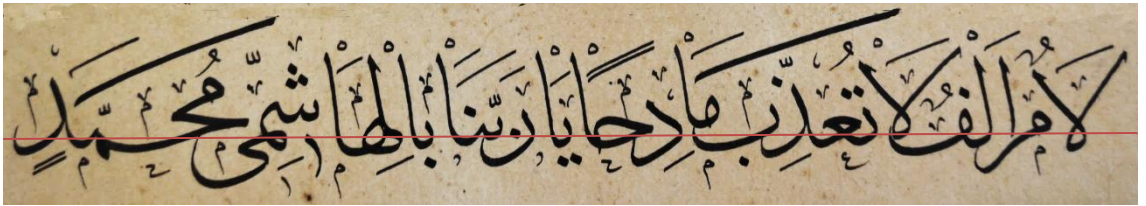 لَامُ اَلِفُ لَا تُعَذِّبْ مَادِحًا يَا رَبَّنَا بِالْهَاشِمِىِّ مُحَمَّدٍ